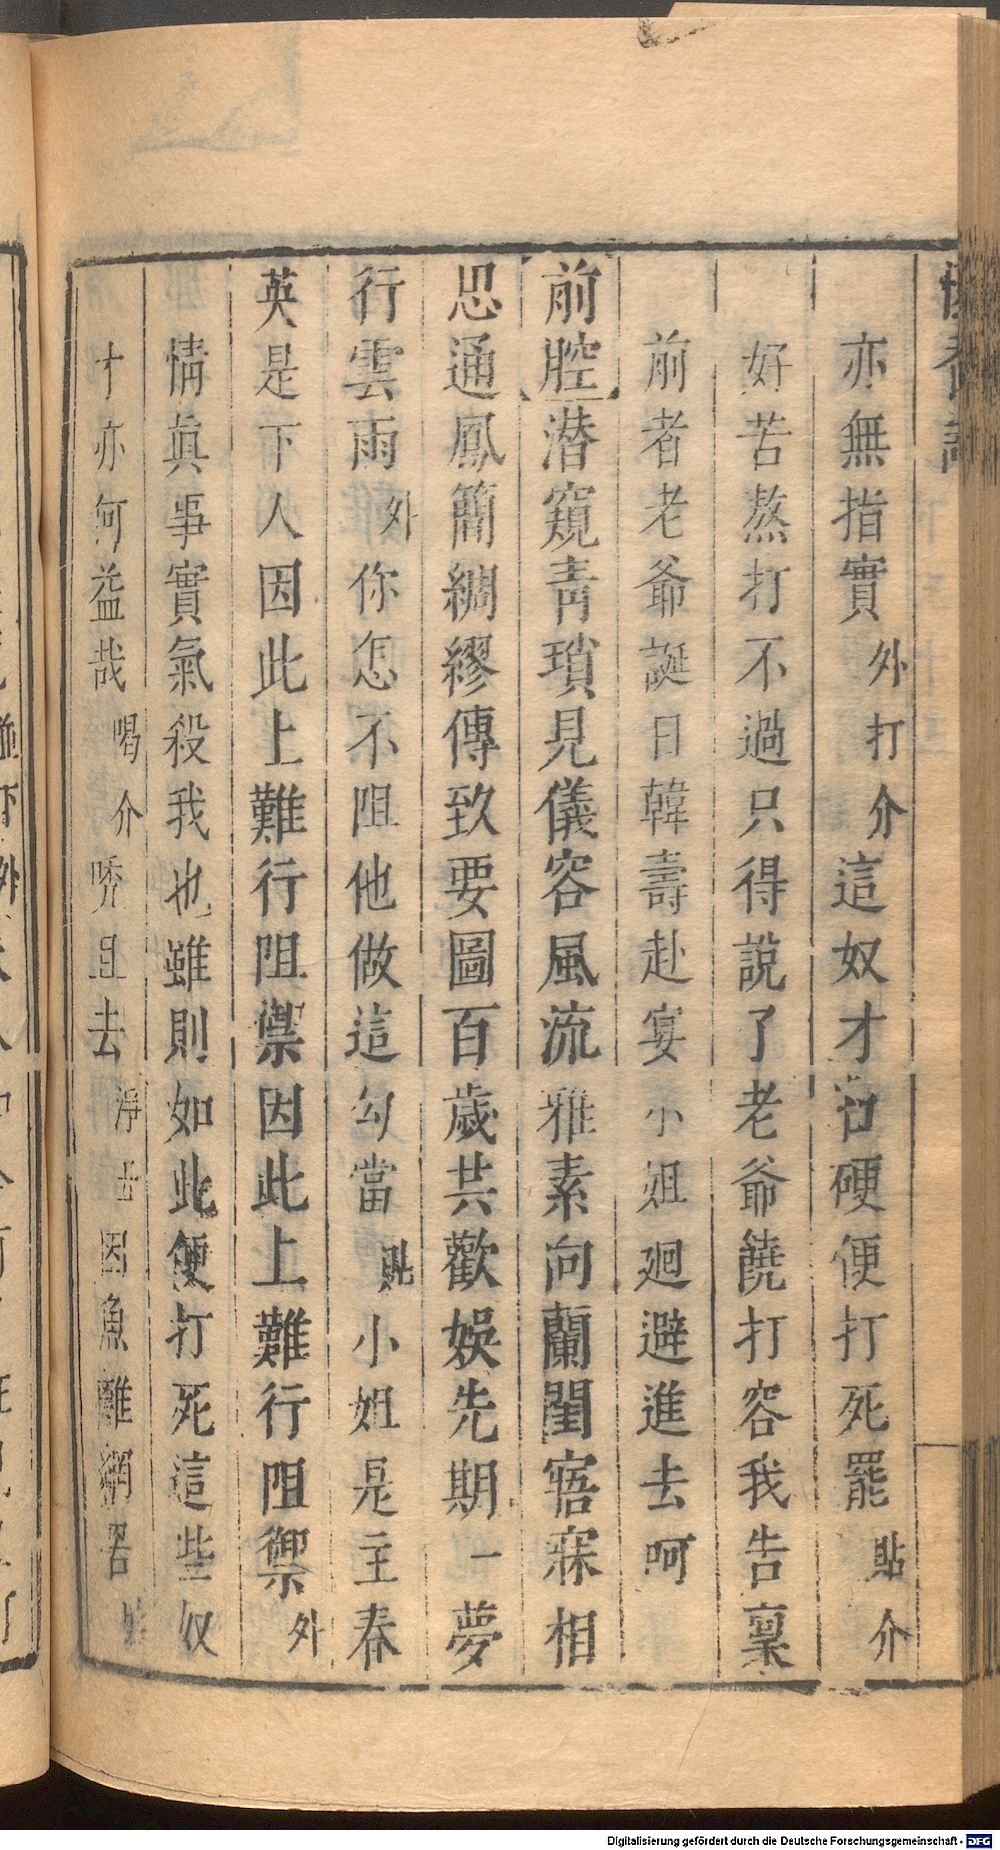 亦無指實外打介這奴才口硬便打死罷貼介
好苦熬打不過只得說了老爺饒打容我告稟
前者老爺誕日韓壽赴宴小姐廻避進去呵
前腔潜窺青瑣見儀容風流雅素向蘭閨寤寐相
思通鳳簡綢繆傳致要圖百歳共歡娛先期一夢
行雲雨外你怎不阻他做這勾當貼小姐是主春
英是下人因此上難行阻禦因此上難行阻禦外
情眞事實氣殺我也雖則如此便打死這些奴
才亦何益哉喝介唗且去淨上因魚離網罟
Digitalisierung gefördert durch die Deutsche Forschungsgemeinschaft - DFG